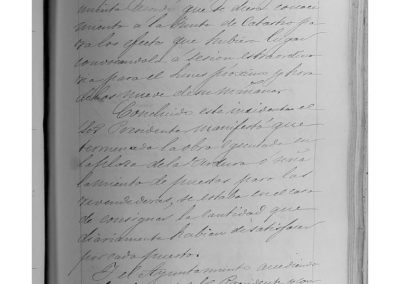 miento a la Junta de Catastro pa
ra los efectos que hubiere lugar
convocandola á sesion extraordina
ria para el lunes próximo y hora
de las nueve de su mañana.
Concluido este incidente el
Sor Presidente manifestó que
terminada la obra ejecutada en
la plaza de la Verdura ó sea
lamiento de puestos para las
revendedoras, se estaba en el caso
de consignar la cantidad que
diariamente habian de satisfacer
por cada puesto.
Y el Ayuntamiento
Presidente